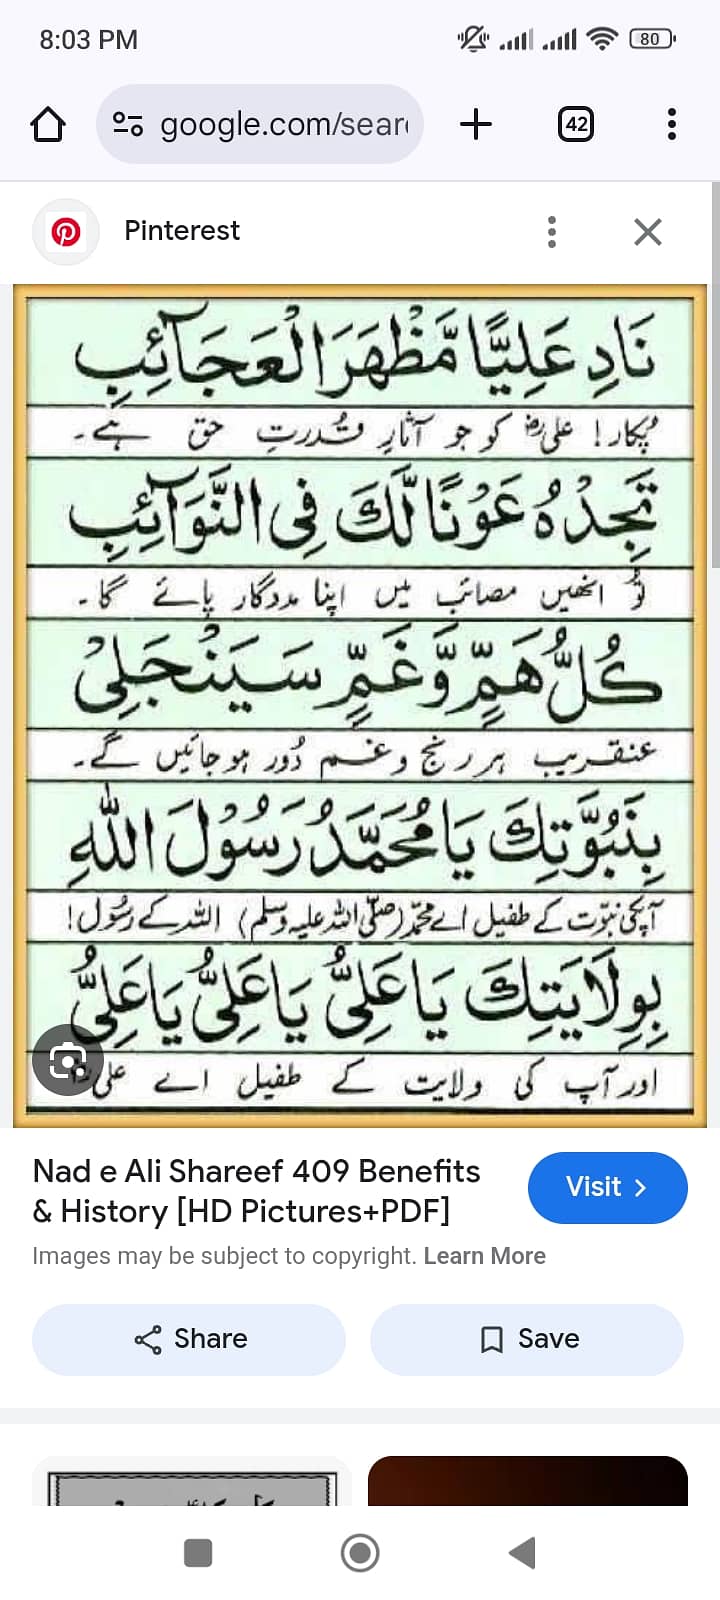 8:03 PM
80
google.com/sear
42
Pinterest
نَادِ عَلِيًّا مَّظْهَرَ الْعَجَآئِبِ
پُکار! علیؓ کو جو آثارِ قُدرتِ حق ہے۔
تَجِدْهُ عَوْنًا لَّكَ فِى النَّوَآئِبِ
تُو انھیں مصائب میں اپنا مددگار پائے گا۔
كُلُّ هَمٍّ وَّغَمٍّ سَيَنْجَلِىْ
عنقریب ہر رنج و غم دُور ہو جائیں گے۔
بِنَبُوَّتِكَ يَا مُحَمَّدُ رَسُوْلَ اللهِ
آپکی نبوّت کے طفیل اے محمّدؐ (صلّی اللہ علیہ وسلم) اللہ کے رسُول!
بِوِلَايَتِكَ يَا عَلِىُّ يَا عَلِىُّ يَا عَلِىُّ
اور آپ کی ولایت کے طفیل اے علی
Nad e Ali Shareef 409 Benefits
& History [HD Pictures+PDF]
Visit
Images may be subject to copyright. Learn More
Share
Save